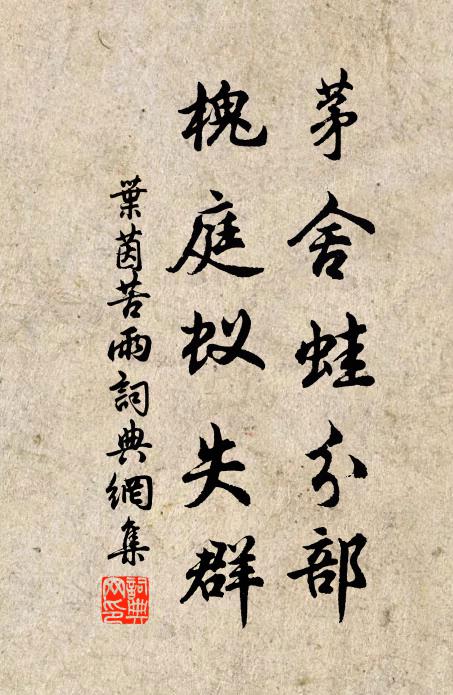 茅舍蛙分部
槐庭蚁失群
葉茵苦雨詞典網集
詞典网印